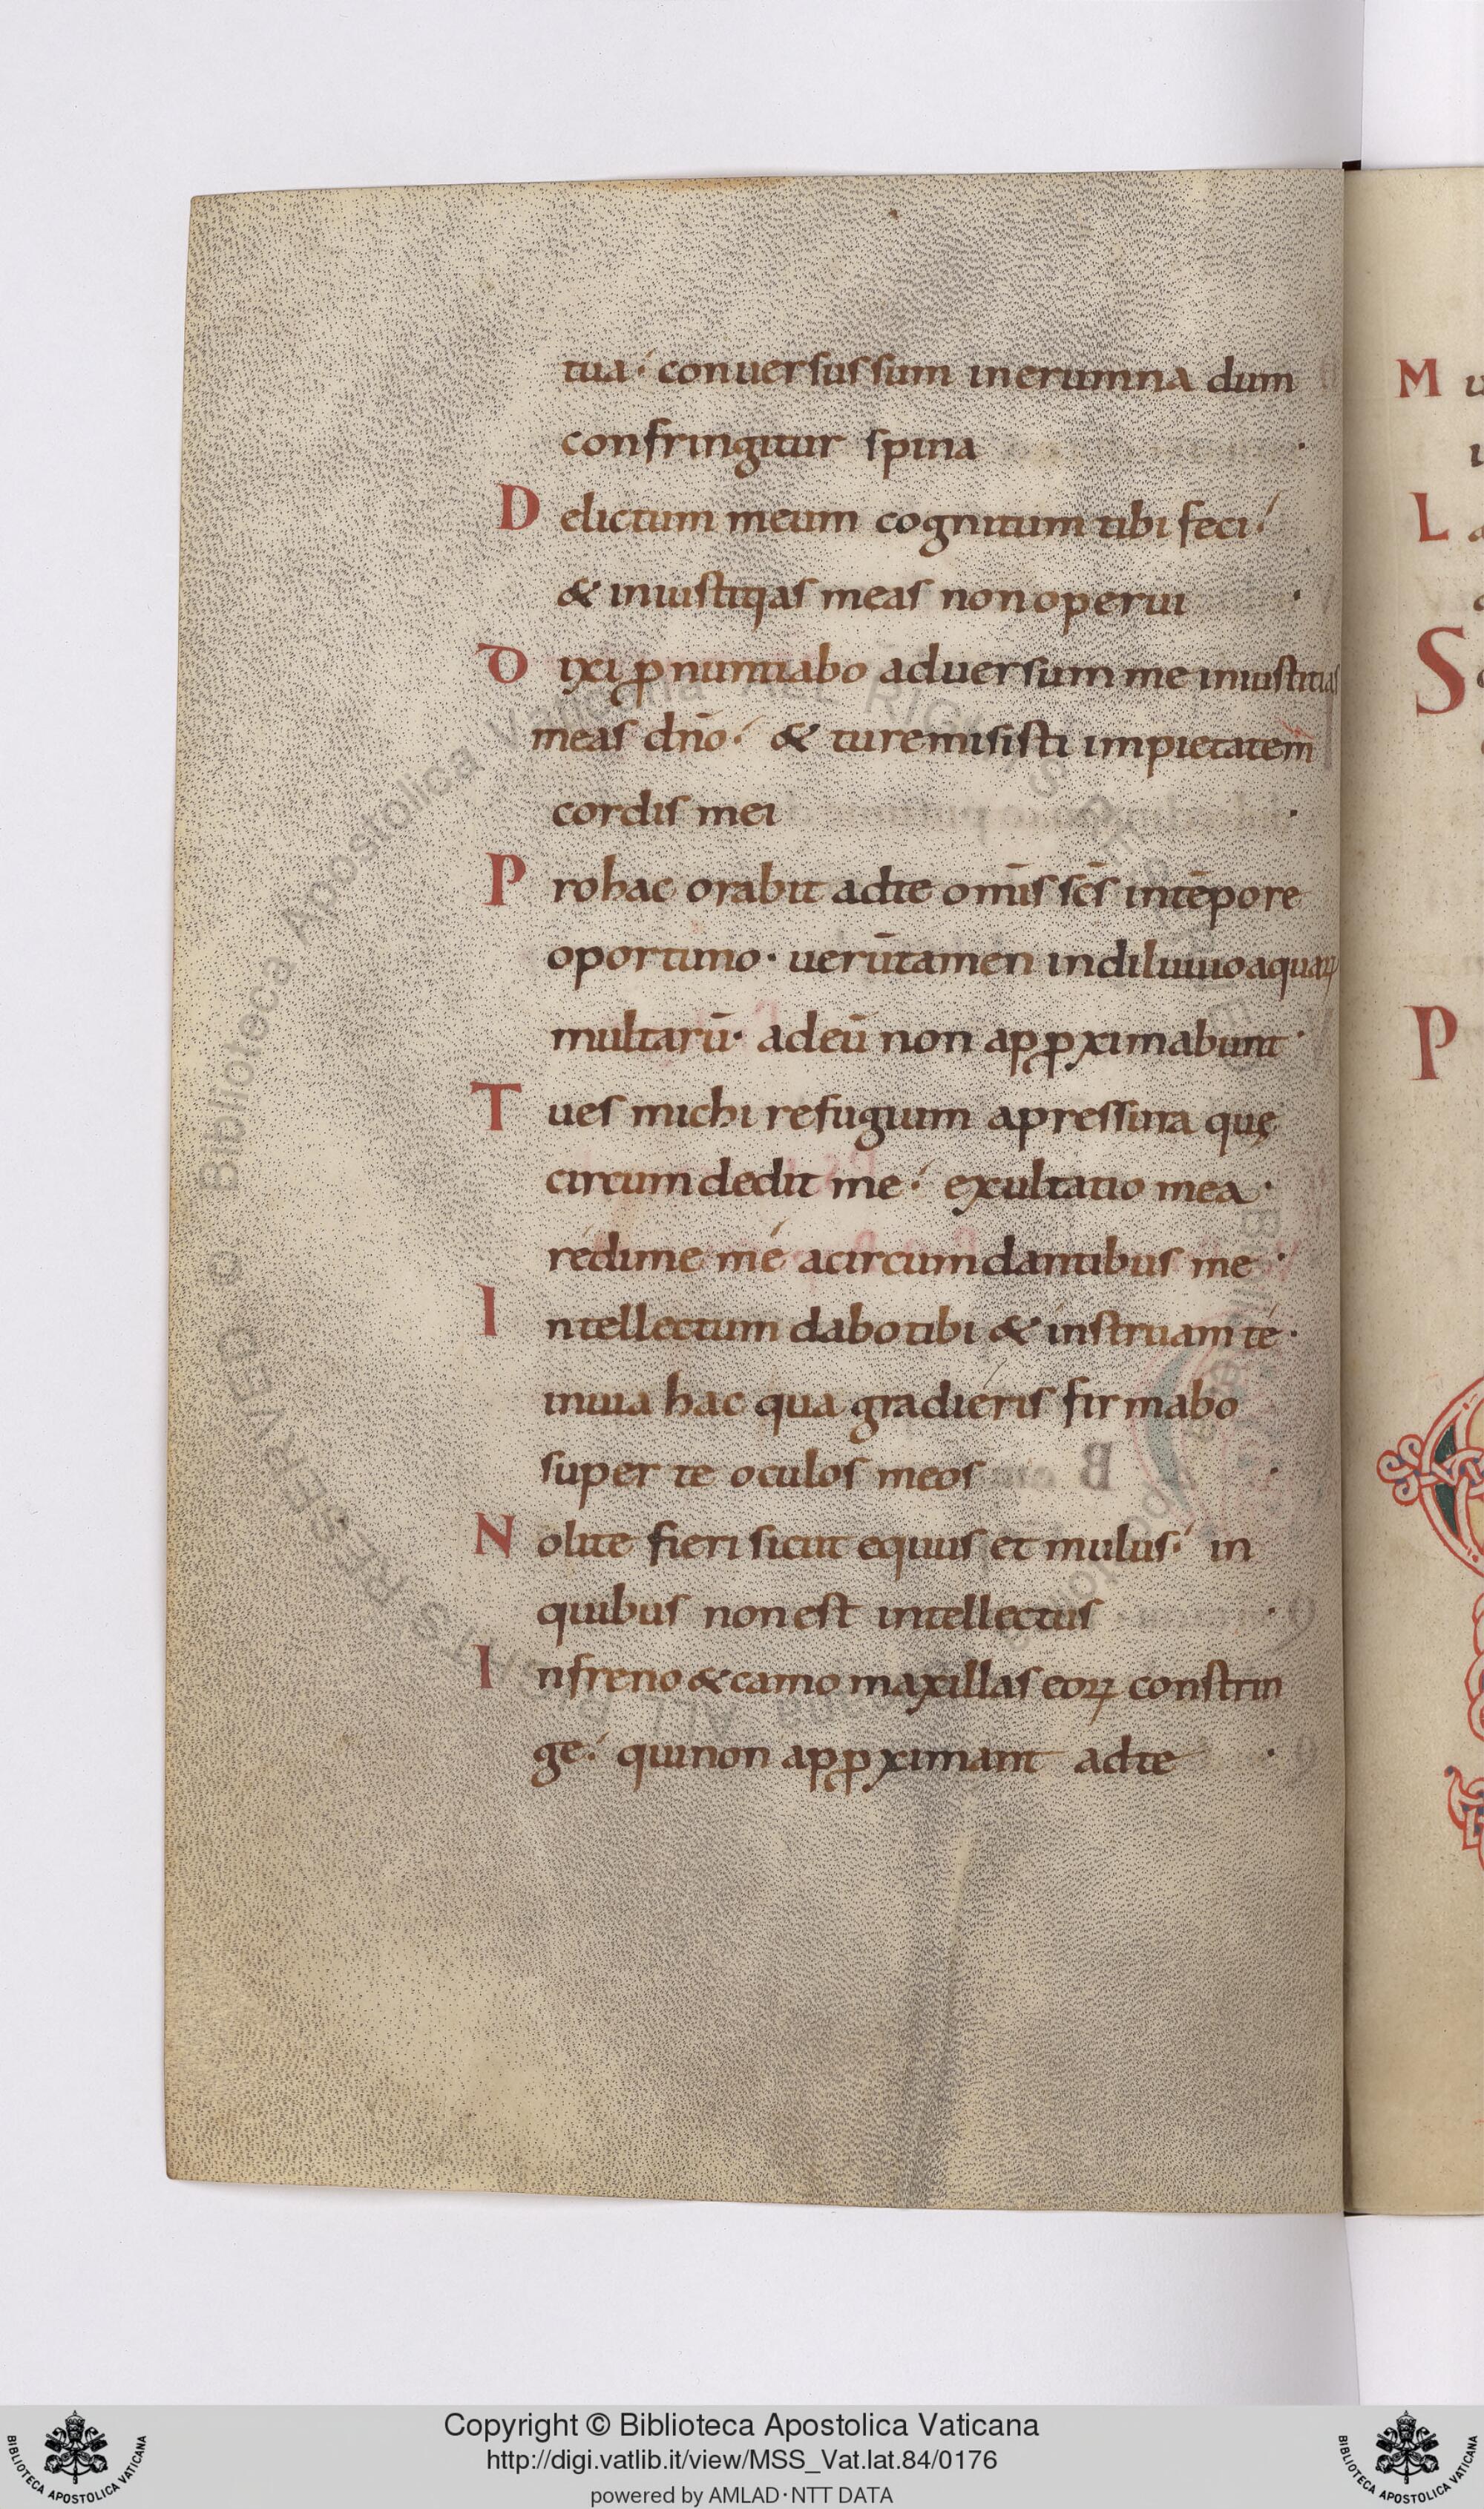 tua· conuersus sum inerumna dum
confringitur spina ·
Delictum meum cognitum tibi feci·
& iniustitias meas non operui ·
Dixi ꝓnuntiabo aduersum me iniustitias
meas dn̄o· & tu remisisti impietatem
cordis mei ·
Pro hac orabit ad te om̄is sc̄s in tēpore
oportuno· uerūtamen in diluuio aquaꝝ
multarū· ad eū non apꝓximabunt·
Tu es michi refugium a pressura quę
circumdedit me· exultatio mea·
redime me a circumdantibus me·
Intellectum dabo tibi & instruam te·
in uia hac qua gradieris firmabo
super te oculos meos ·
Nolite fieri sicut equus et mulus· in
quibus non est intellectus ·
In freno & camo maxillas eoꝝ constrin
ge· qui non apꝓximant ad te ·
M
L
S
P
Copyright © Biblioteca Apostolica Vaticana
http://digi.vatlib.it/view/MSS_Vat.lat.84/0176
powered by AMLAD·NTT DATA
BIBLIOTECA APOSTOLICA VATICANA
BIBLIOTECA APOSTOLICA VATICANA